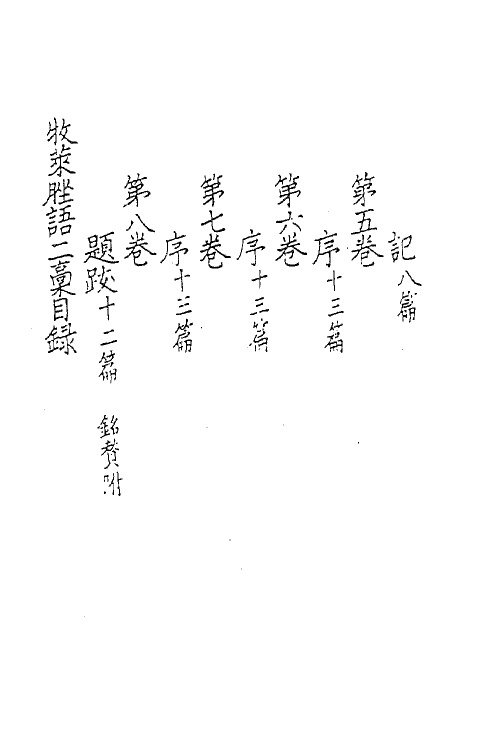 記八篇
第五卷
序十三篇
第六卷
序十三篇
第七卷
序十三篇
第八卷
題跋十二篇　銘賛附
牧萊脞語二藁目録